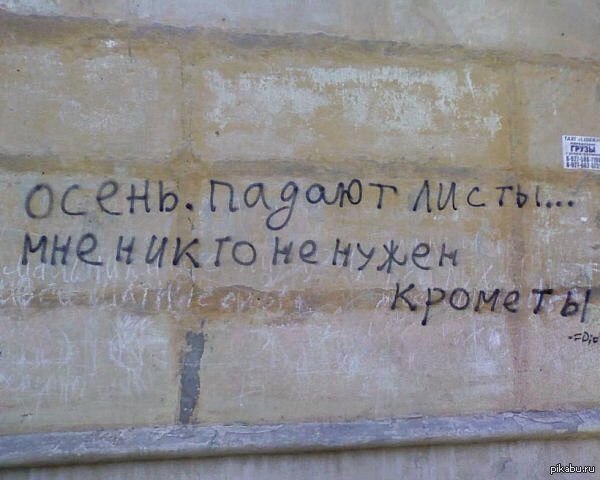 осень. падают листы...
мне никто не нужен
кроме ты
ГРУЗЫ
pikabu.ru